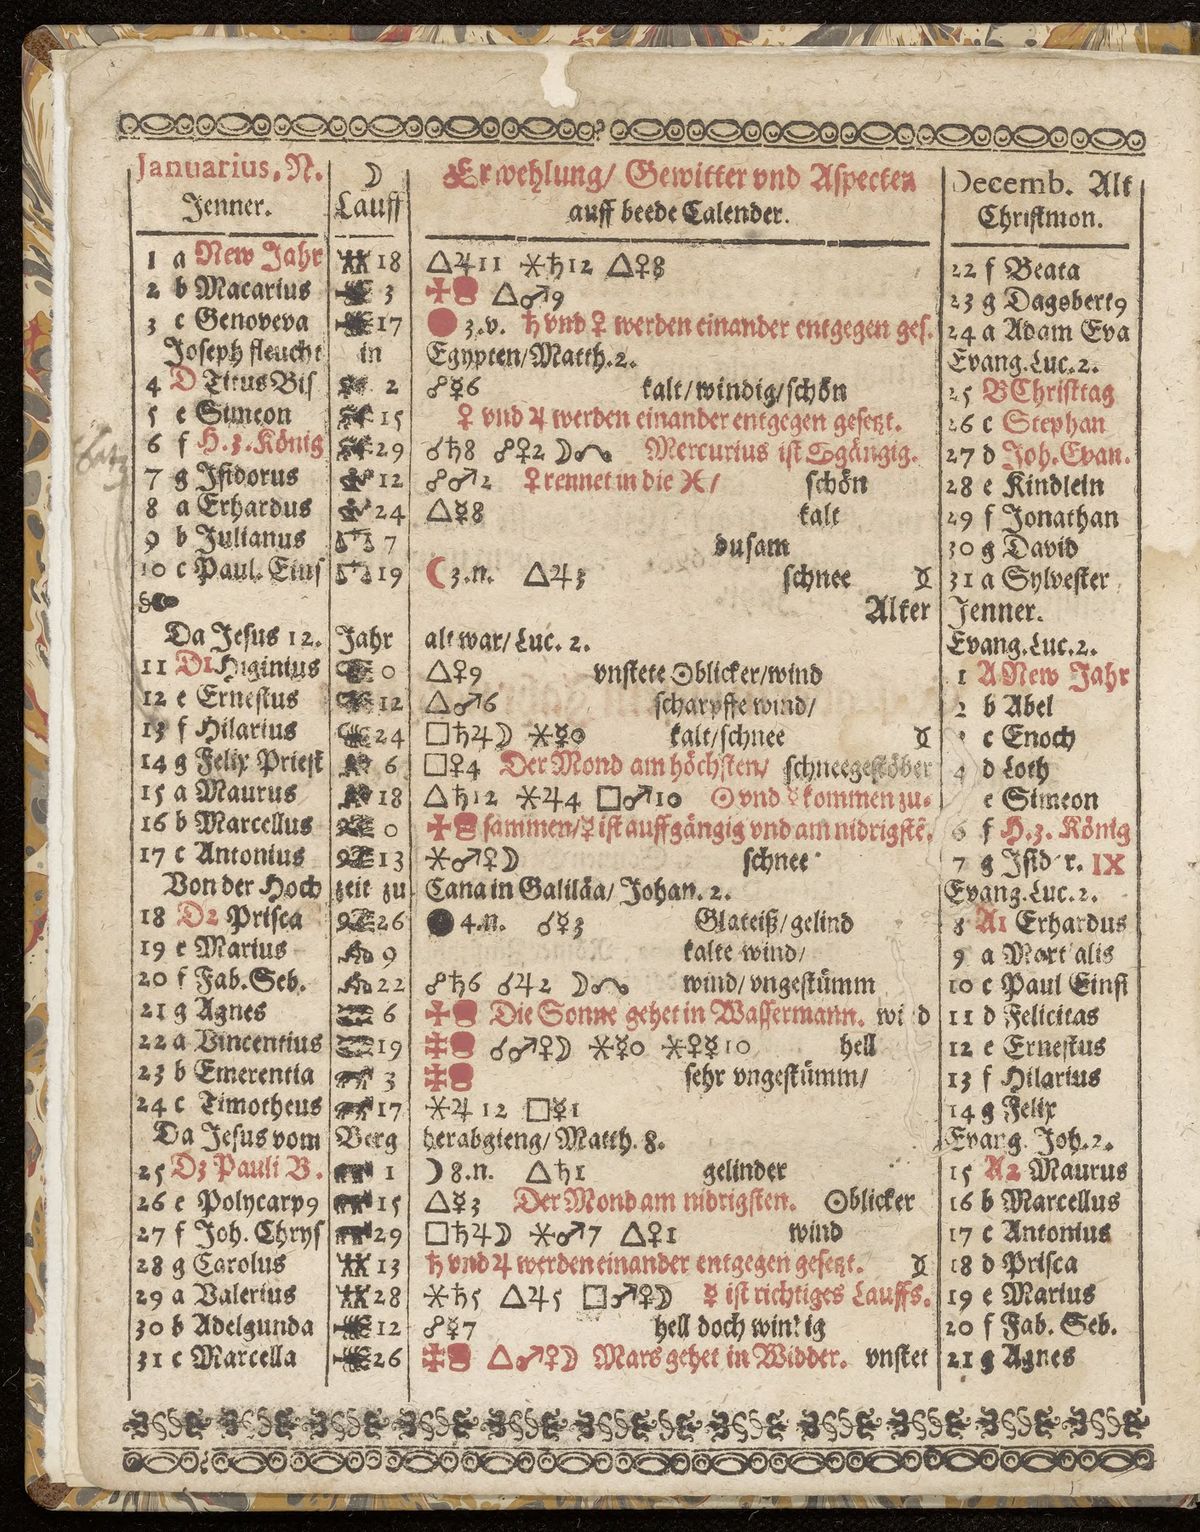 Januarius, N. ☽ Erwehlung/ Gewitter vnd Aspecten Decemb. Alt
Jenner. Lauff auff beede Calender. Christmon.
1 a New Jahr 18 △♃11 ⚹♄12 △♀8 22 f Beata
2 b Macarius 3 △♂9 23 g Dagobert9
3 c Genoveva 17 ● 3.v. ♄ vnd ♀ werden einander entgegen ges. 24 a Adam Eva
Joseph fleucht in Egypten/Matth.2. Evang.Luc.2.
4 D Titus Bis 2 ☍☿6 kalt/windig/schön 25 B Christtag
5 e Simeon 15 ♀ vnd ♃ werden einander entgegen gesetzt. 26 c Stephan
6 f H.3.König 29 ☌♄8 ☍♀2 ☽☊ Mercurius ist gängig. 27 d Joh.Evan.
7 g Isidorus 12 ☍♂2 ♀ rennet in die ♓/ schön 28 e Kindlein
8 a Erhardus 24 △☿8 kalt 29 f Jonathan
9 b Julianus 7 dusam 30 g David
10 c Paul. Eins 19 ☾3.n. △♃3 schnee 31 a Sylvester
Alter Jenner.
Da Jesus 12. Jahr alt war/ Luc. 2. Evang.Luc.2.
11 D1 Higinius 0 △♀9 vnstete ☉blicker/wind 1 A New Jahr
12 e Ernestus 12 △♂6 scharpffe wind/ 2 b Abel
13 f Hilarius 24 □♄♃☽ ⚹☿0 kalt/schnee c Enoch
14 g Felix Priest 6 □♀4 Der Mond am höchsten/ schneegestöber 4 d Loth
15 a Maurus 18 △♄12 ⚹♃4 □♂10 ☉ vnd ☿ kommen zu- e Simeon
16 b Marcellus 0 sammen/☿ ist auffgängig vnd am nidrigstē. 6 f H.3. König
17 c Antonius 13 ⚹♂♀☽ schnee 7 g Isid r. IX
Von der Hoch zeit zu Cana in Galiläa/ Johan. 2. Evang.Luc.2.
18 D2 Prisca 26 ● 4.n. ☌☿3 Glateiß/gelind 8 A1 Erhardus
19 e Marius 9 kalte wind/ 9 a Mart alis
20 f Fab.Seb. 22 ☍♄6 ☌♃2 ☽☊ wind/vngestümm 10 c Paul Einsi
21 g Agnes 6 Die Sonne gehet in Wassermann. wi d 11 d Felicitas
22 a Vincentius 19 ☌♂♀☽ ⚹☿0 ⚹♀☿10 hell 12 e Ernestus
23 b Emerentia 3 sehr vngestümm/ 13 f Hilarius
24 c Timotheus 17 ⚹♃12 □☿1 14 g Felix
Da Jesus vom Berg herabgieng/ Matth. 8. Evang. Joh.2.
25 D3 Pauli B. 1 ☽8.n. △♄1 gelinder 15 A2 Maurus
26 e Polycarp9 15 △☿3 Der Mond am nidrigsten. ☉blicker 16 b Marcellus
27 f Joh. Chrys 29 □♄♃☽ ⚹♂7 △♀1 wind 17 c Antonius
28 g Carolus 13 ♄ vnd ♃ werden einander entgegen gesetzt. 18 d Prisca
29 a Valerius 28 ⚹♄5 △♃5 □♂♀☽ ☿ ist richtiges Lauffs. 19 e Marius
30 b Adelgunda 12 ☍☿7 hell doch windig 20 f Fab. Seb.
31 c Marcella 26 △♂♀☽ Mars gehet in Widder. vnstet 21 g Agnes